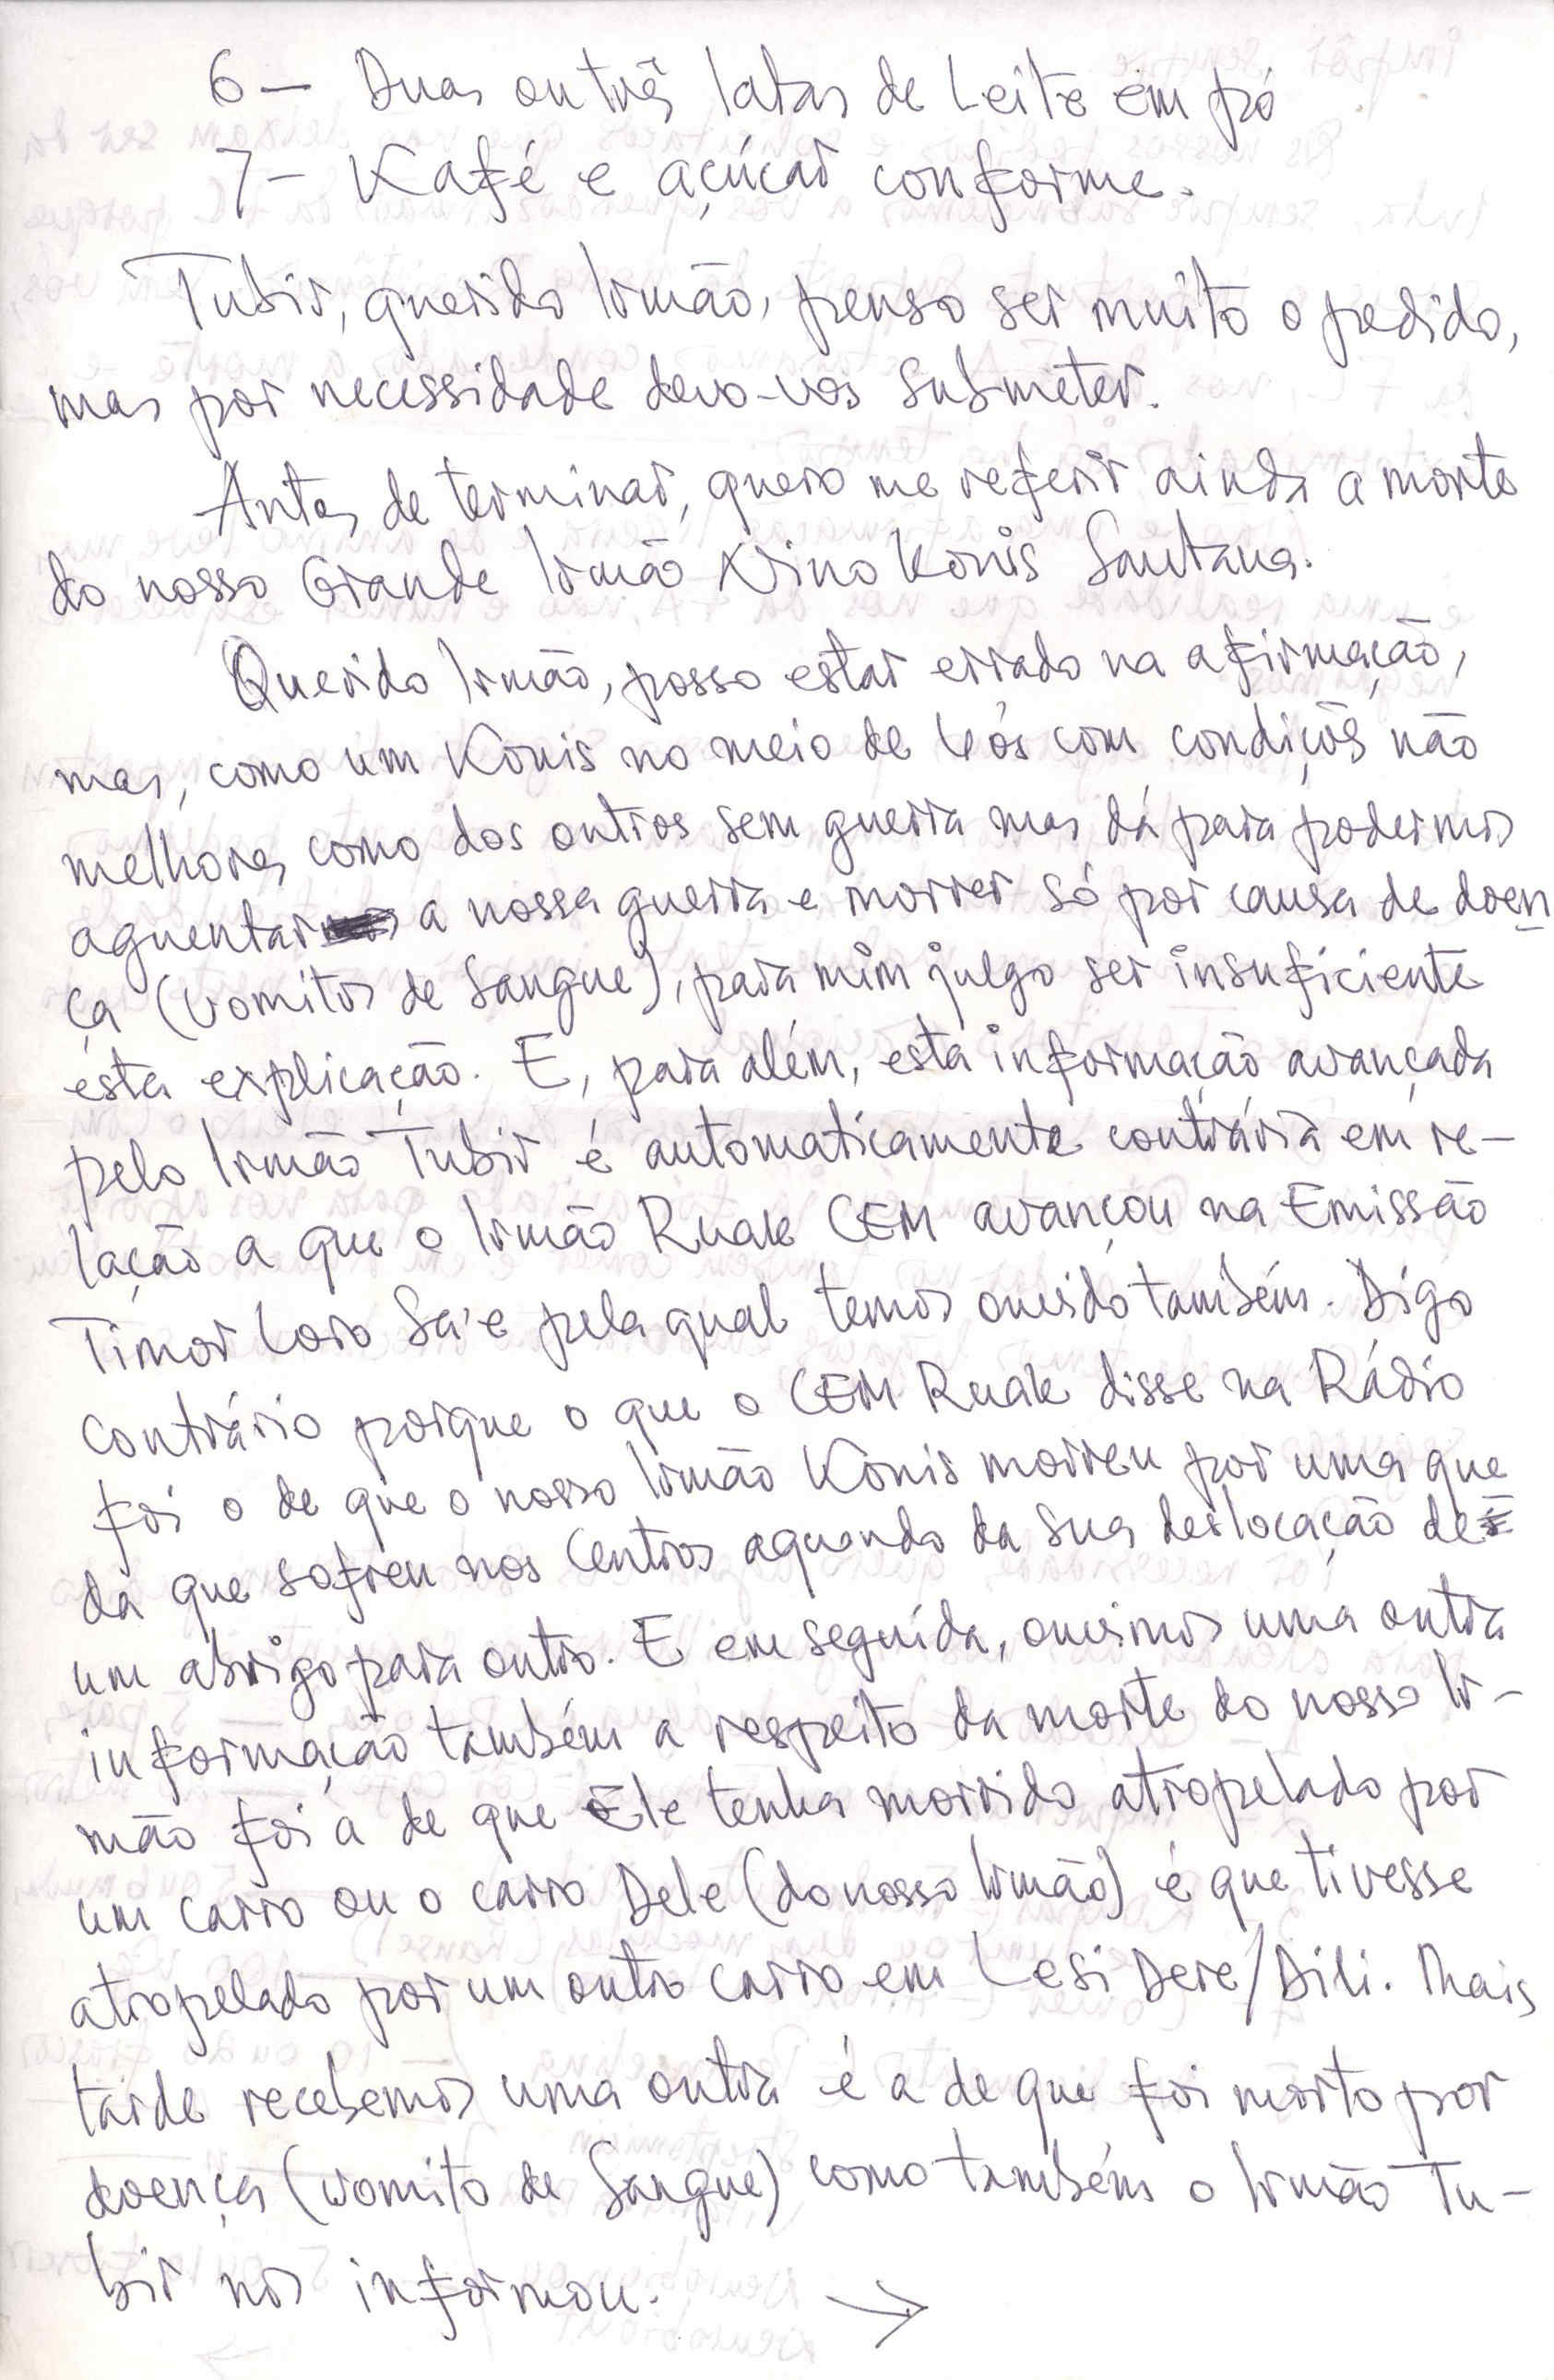 6 – Duas ou três latas de Leite em pó
7 – Kafé e açúcar conforme.
Tubir, querido Irmão, penso ser muito o pedido,
mas por necessidade devo-vos submeter.
Antes de terminar, quero me referir ainda a morte
do nosso Grande Irmão Nino Konis Santana.
Querido Irmão, posso estar errado na afirmação,
mas, como um Konis no meio de Vós com condições não
melhores como dos outros sem guerra mas dá para podermos
aguentar a nossa guerra e morrer só por causa de doen
ça (vomitos de Sangue), para mim julgo ser insuficiente
esta explicação. E, para além, esta informação avançada
pelo Irmão Tubir é automaticamente contrária em re–
lação a que o Irmão Ruak CEM avançou na Emissão
Timor Loro Sa'e pela qual temos ouvido também. Digo
contrário porque o que o CEM Ruak disse na Rádio
foi o de que o nosso Irmão Konis morreu por uma que
da que sofreu nos Centros aquando da sua deslocação de
um abrigo para outro. E em seguída, ouvimos uma outra
informação também a respeito da morte do nosso Ir–
mão foi a de que Ele tenha morrido atropelado por
um carro ou o carro Dele (do nosso Irmão) é que tivesse
atropelado por um outro carro em Lesi Dere/Dili. Mais
tarde recebemos uma outra é a de que foi morto por
doença (vomito de Sangue) como também o Irmão Tu–
bir nos informou. →